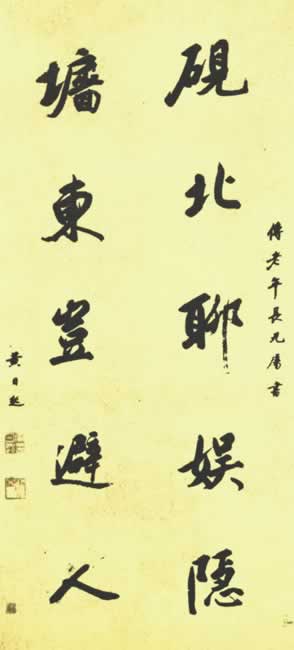 傅老年長兄屬書
硯北聊娛隱
墻東豈避人
黃日起